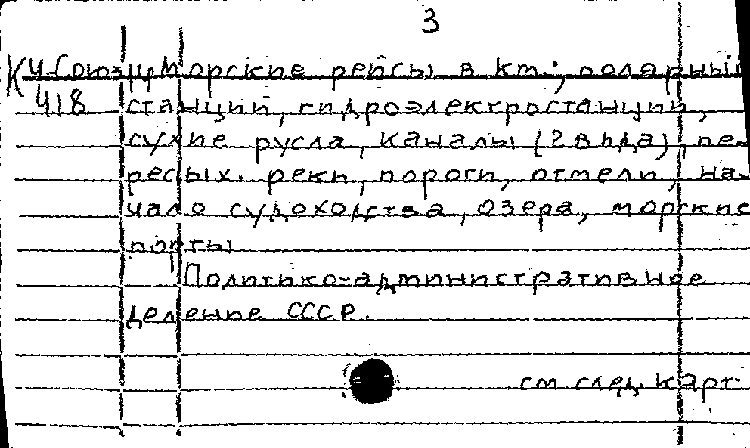 3
К У-Союз ц Морские рейсы в км.; полярный
418 станции, гидроэлектростанции,
сухие русла, каналы (2 вида), пе-
ресых. реки, пороги, отмели, на-
чало судоходства, озера, морские
порты
Политико-административное
деление СССР.
см след. карт